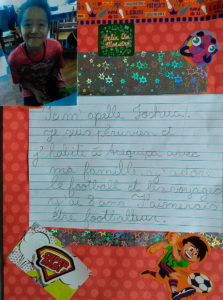 Feliz Día
Maestro
Je m'apelle Joshua.
je suis péruvien et
j'habite à Arequipa avec
ma famille j'adore
le football et les voyages
j'ai 8 ans J'aimerais
être footballeur.
BEST